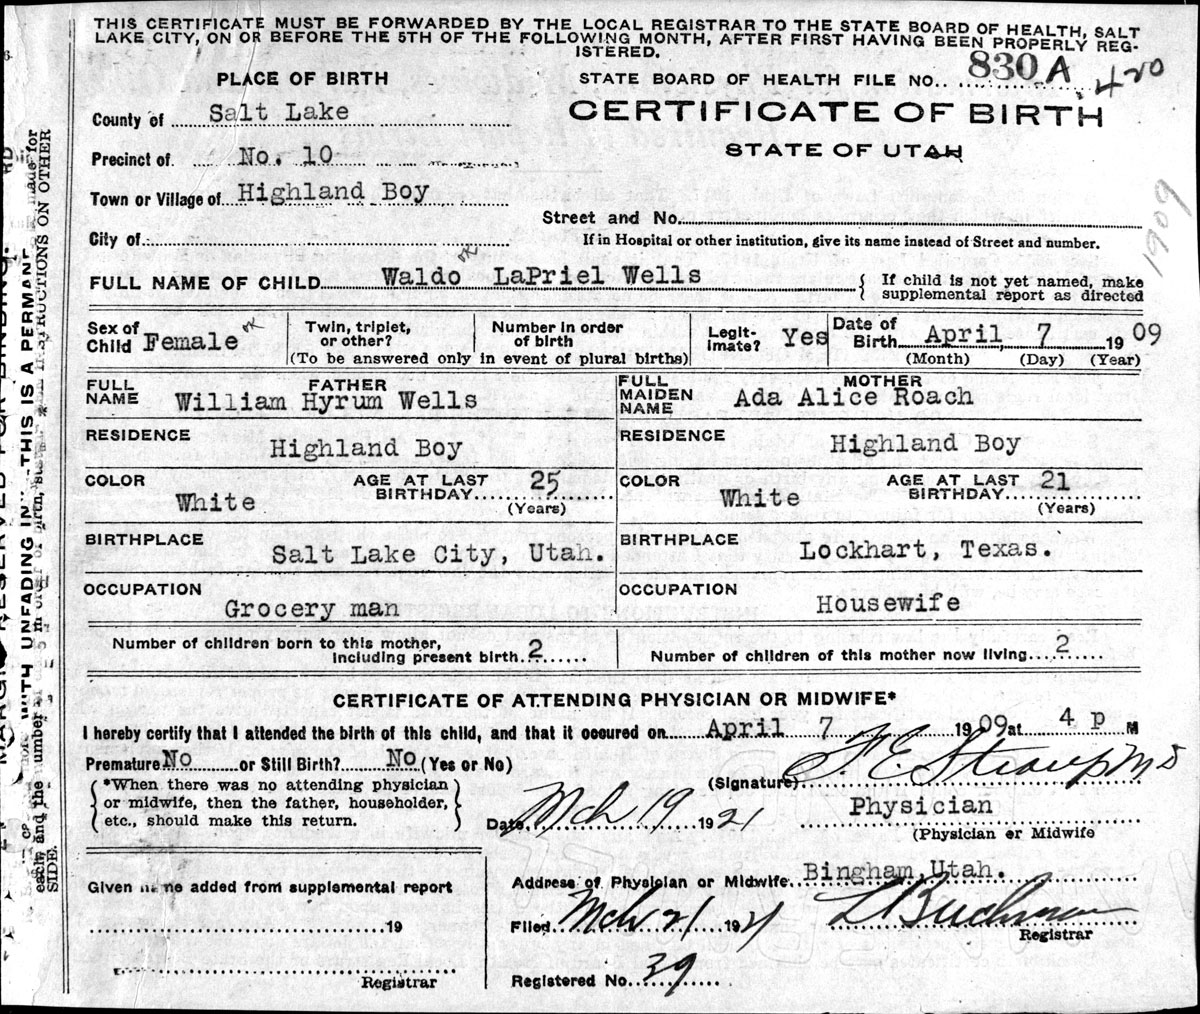 THIS CERTIFICATE MUST BE FORWARDED BY THE LOCAL REGISTRAR TO THE STATE BOARD OF HEALTH, SALT
LAKE CITY, ON OR BEFORE THE 5TH OF THE FOLLOWING MONTH, AFTER FIRST HAVING BEEN PROPERLY REG-
ISTERED.
PLACE OF BIRTH
STATE BOARD OF HEALTH FILE NO. 830 A. 420
County of Salt Lake
CERTIFICATE OF BIRTH
Precinct of No. 10
STATE OF UTAH
Town or Village of Highland Boy
1909
Street and No.
City of
If in Hospital or other institution, give its name instead of Street and number.
FULL NAME OF CHILD Waldo OK LaPriel Wells
{ If child is not yet named, make
supplemental report as directed
Sex of
Child Female OK
Twin, triplet,
or other?
Number in order
of birth
(To be answered only in event of plural births)
Legit-
imate? Yes
Date of
Birth April, 7 1909
(Month) (Day) (Year)
FULL
NAME
FATHER
William Hyrum Wells
FULL
MAIDEN
NAME
MOTHER
Ada Alice Roach
RESIDENCE
Highland Boy
RESIDENCE
Highland Boy
COLOR
White
AGE AT LAST
BIRTHDAY 25
(Years)
COLOR
White
AGE AT LAST
BIRTHDAY 21
(Years)
BIRTHPLACE
Salt Lake City, Utah.
BIRTHPLACE
Lockhart, Texas.
OCCUPATION
Grocery man
OCCUPATION
Housewife
Number of children born to this mother,
including present birth 2
Number of children of this mother now living 2
CERTIFICATE OF ATTENDING PHYSICIAN OR MIDWIFE*
I hereby certify that I attended the birth of this child, and that it occured on April 7 1909 at 4 p M
Premature No or Still Birth? No (Yes or No)
(Signature) F. E. Straup MD
{ *When there was no attending physician
or midwife, then the father, householder,
etc., should make this return. }
Date Mch 19 1921
Physician
(Physician or Midwife
Address of Physician or Midwife Bingham, Utah.
Given name added from supplemental report
19
Registrar
Filed Mch 21 1921
Registrar
Registered No. 39
WITH UNFADING INK
THIS IS A PERMANENT
SIDE.